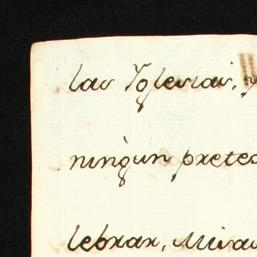 las Yglesias, y
ningun pretec
lebrar, Misas